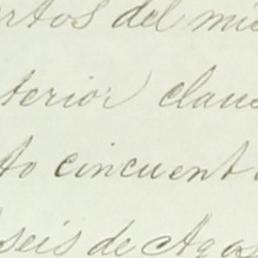 ertos del mi
terior clau
to cincuent
seis de Agos